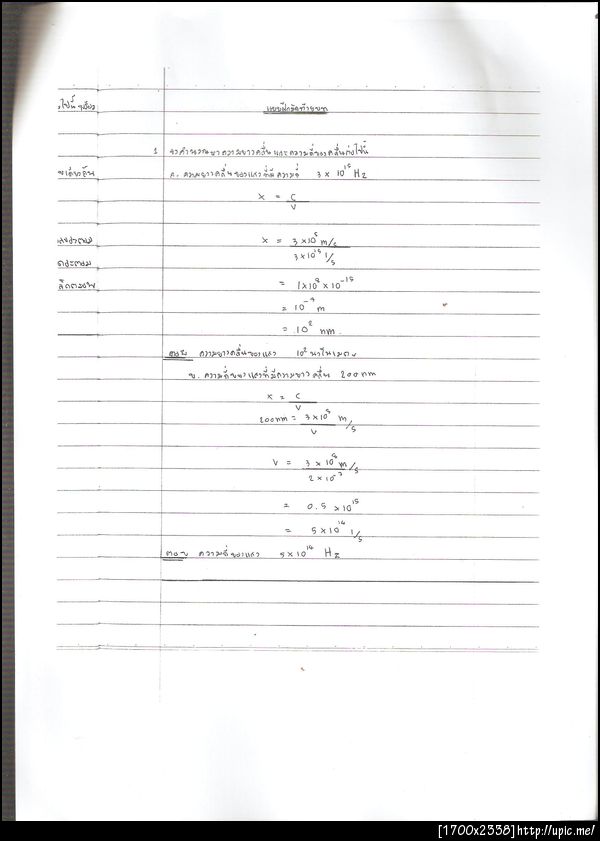 แบบฝึกหัดท้ายบท
1 จงคำนวณหาความยาวคลื่นและความถี่ของคลื่นต่อไปนี้
ก. ความยาวคลื่นของแสงที่มีความถี่ 3 x 10^15 Hz
x = C
V
x = 3 x 10^8 m/s
3 x 10^15 1/s
= 1 x 10^8 x 10^-15
= 10^-7 m
= 10^2 nm.
ตอบ ความยาวคลื่นของแสง 10^2 นาโนเมตร
ข. ความถี่ของแสงที่มีความยาวคลื่น 200 nm
x = C
V
200 nm = 3 x 10^8 m/s
V
V = 3 x 10^8 m/s
2 x 10^-7
= 0.5 x 10^15
= 5 x 10^14 1/s
ตอบ ความถี่ของแสง 5 x 10^14 Hz
[1700x2338]http://upic.me/